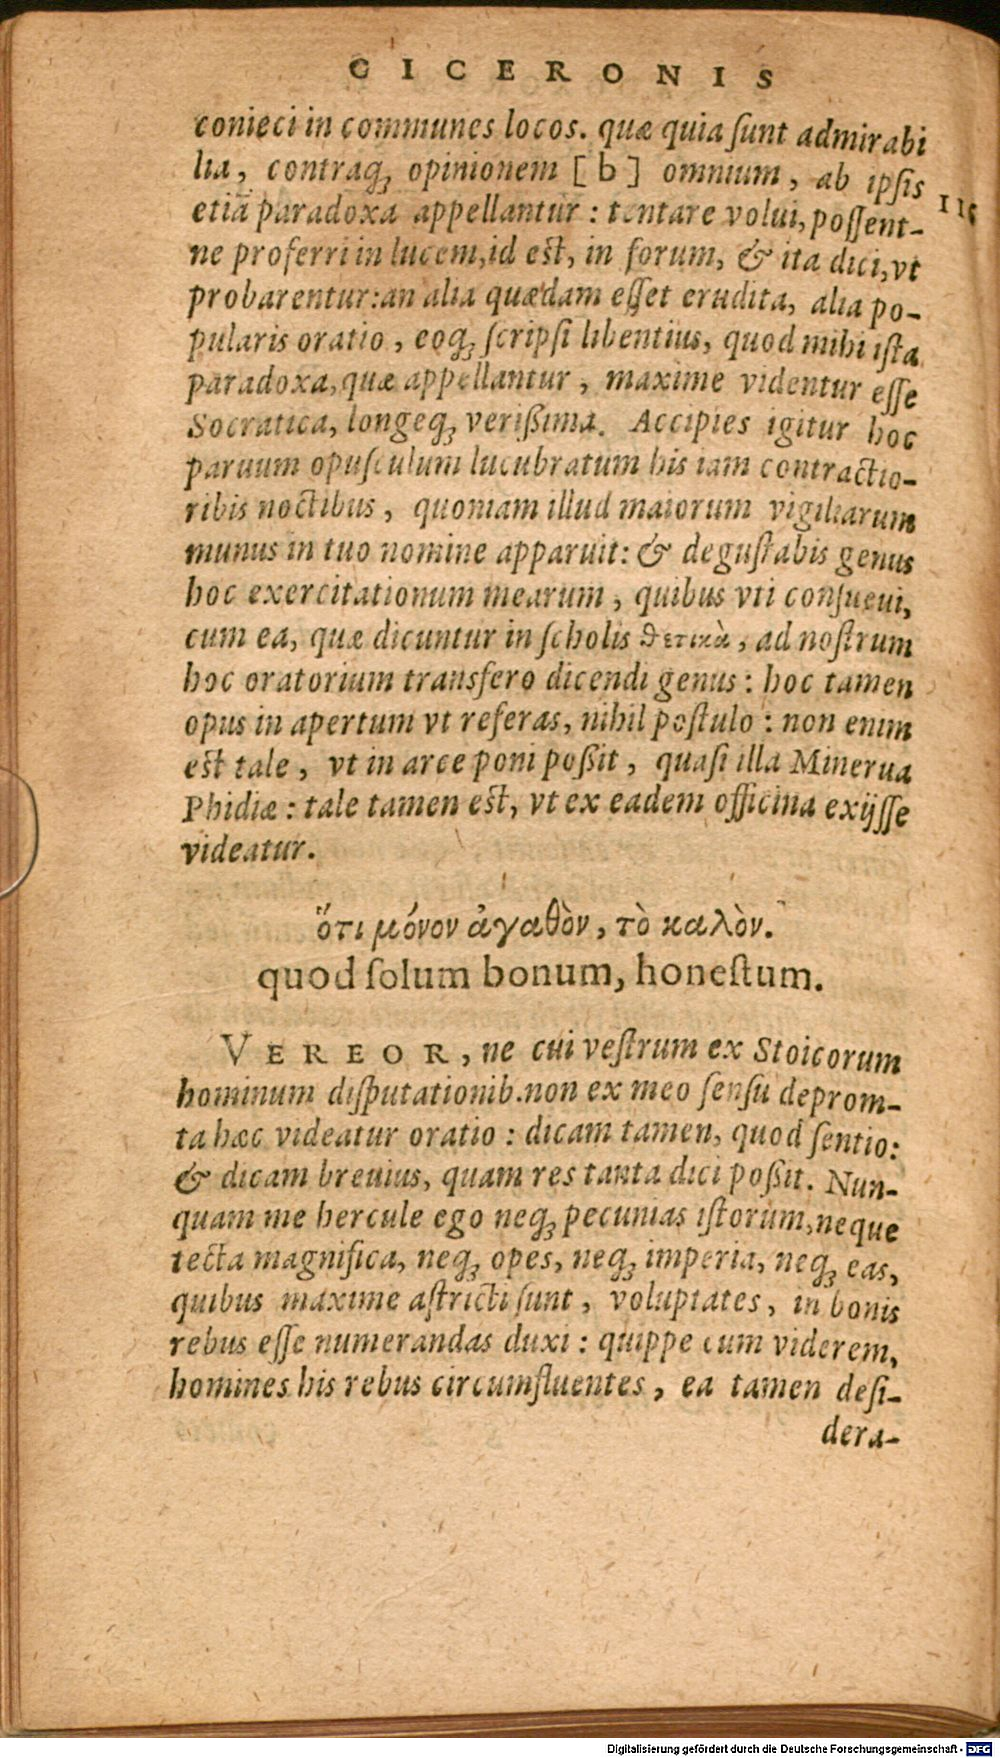 CICERONIS
conieci in communes locos. quæ quia ſunt admirabi
lia, contraq́; opinionem [b] omnium, ab ipſis
etiã paradoxa appellantur : tentare volui, poſſent-
ne proferri in lucem, id eſt, in forum, & ita dici, vt
probarentur: an alia quædam eſſet erudita, alia po-
pularis oratio, eoq́; ſcripſi libentius, quod mihi iſta
paradoxa, quæ appellantur, maxime videntur eſſe
Socratica, longeq́; verißima. Accipies igitur hoc
paruum opuſculum lucubratum his iam contractio-
ribis noctibus, quoniam illud maiorum vigiliarum
munus in tuo nomine apparuit: & deguſtabis genus
hoc exercitationum mearum, quibus vti conſueui,
cum ea, quæ dicuntur in ſcholis θετικὰ, ad noſtrum
hoc oratorium transfero dicendi genus: hoc tamen
opus in apertum vt referas, nihil poſtulo : non enim
eſt tale, vt in arce poni poßit, quaſi illa Minerua
Phidiæ : tale tamen eſt, vt ex eadem officina exijſſe
videatur.
ὅτι μόνον ἀγαθὸν, τὸ καλὸν.
quod ſolum bonum, honeſtum.
VEREOR, ne cui veſtrum ex Stoicorum
hominum diſputationib. non ex meo ſenſu deprom-
ta hæc videatur oratio : dicam tamen, quod ſentio:
& dicam breuius, quam res tanta dici poßit. Nun-
quam me hercule ego neq́; pecunias iſtorum, neque
tecta magnifica, neq́; opes, neq́; imperia, neq́; eas,
quibus maxime aſtricti ſunt, voluptates, in bonis
rebus eſſe numerandas duxi : quippe cum viderem,
homines his rebus circumfluentes, ea tamen deſi-
dera-
Digitalisierung gefördert durch die Deutsche Forschungsgemeinschaft - DFG